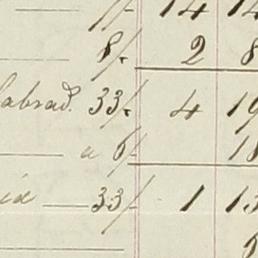 /- 14 14
8/- 2 8
abrad. 33/- 4 19
a 6/- 18
33/- 1 13